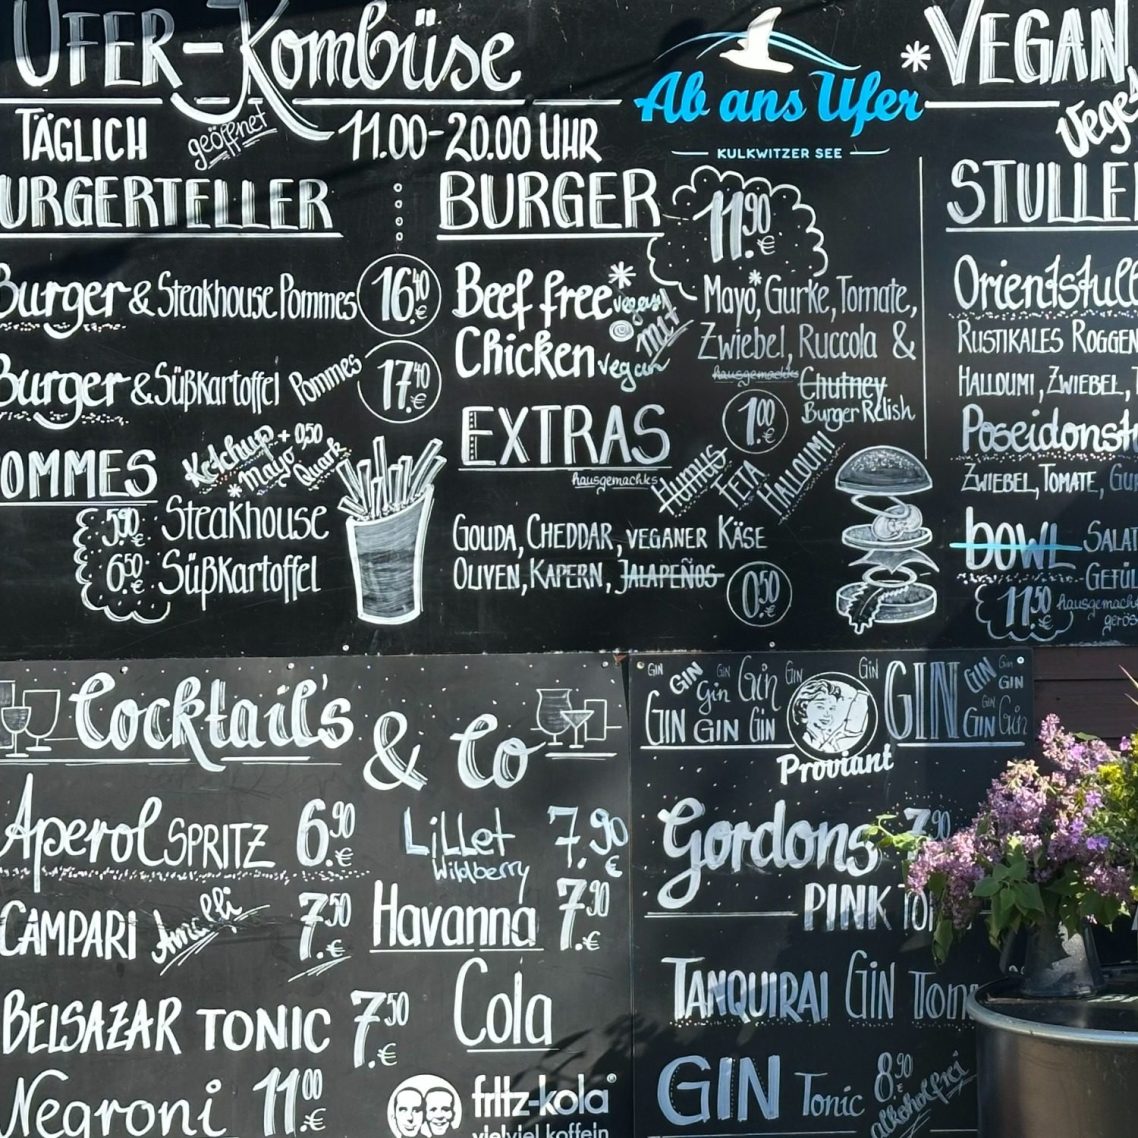 UFER-Kombüse
TÄGLICH geöffnet 11.00-20.00 UHR
URGERTELLER
Burger & Steakhouse Pommes 16.40 €
Burger & Süßkartoffel Pommes 17.40 €
OMMES
Ketchup + 0,50
*mayo Quark
5.90 € Steakhouse
6.50 € Süßkartoffel
Ab ans Ufer
KULKWITZER SEE
BURGER 11.90 €
Beef free* vegan
Chicken vegan
mit
Mayo*, Gurke, Tomate,
Zwiebel, Ruccola &
hausgemachtes Chutney
Burger Relish
EXTRAS 1.00 €
hausgemachtes
Humus
FETA
HALLOUMI
GOUDA, CHEDDAR, VEGANER KÄSE
OLIVEN, KAPERN, JALAPEÑOS 0.50 €
*VEGAN
Vege
STULLE
Orientstull
RUSTIKALES ROGGEN
HALLOUMI, ZWIEBEL, T
Poseidonst
ZWIEBEL, TOMATE, GU
BOWL SALAT
GEFÜL
11.50 € hausgemach
gerös
Cocktail's & Co
Aperol SPRITZ 6.90 €
CAMPARI Amalfi 7.50 €
BELSAZAR TONIC 7.50 €
Negroni 11.00 €
LiLLet 7.90 €
Wildberry
Havanna 7.90 €
Cola
fritz-kola
vielviel koffein
GIN GIN GIN Gin GIN GIN GIN GIN
GIN Gin Gin GIN GIN
GIN GIN GIN GIN Gin
Proviant
Gordons 7.90
PINK TO
TANQUIRAI GIN TONI
GIN Tonic 8.90 €
alkoholfrei